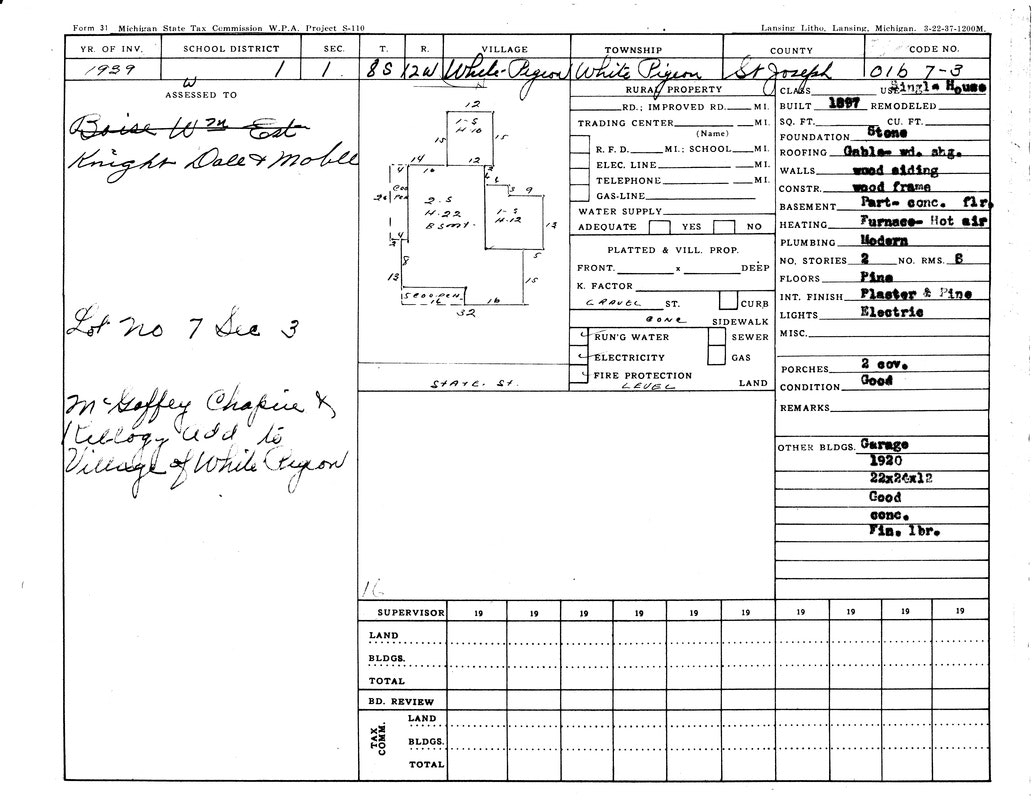 Form 31 Michigan State Tax Commission W.P.A. Project S-110
Lansing Litho, Lansing, Michigan. 3-22-37-1200M.
YR. OF INV. SCHOOL DISTRICT SEC. T. R. VILLAGE TOWNSHIP COUNTY CODE NO.
1939 1 1. 8S 12W White Pigeon White Pigeon St Joseph 016 7-3
W
ASSESSED TO
Boise Wm Est
Knight Dale & Moble
Lot No 7 Sec 3
McGaffey Chapin &
Kellogg add to
Village of White Pigeon
12
1-S
H-10
15 15
14 16 12 2
4
26
2-S
H-22
Bsmt.
3 9
1-S
H-12
13
5
4
2
8
13 15
S COOPEN.
16 16
32
STATE. ST.
16
RURAL PROPERTY
RD.; IMPROVED RD. MI.
TRADING CENTER MI.
(Name)
R. F. D. MI.; SCHOOL MI.
ELEC. LINE MI.
TELEPHONE MI.
GAS-LINE
WATER SUPPLY
ADEQUATE YES NO
PLATTED & VILL. PROP.
FRONT. x DEEP
K. FACTOR
GRAVEL ST. CURB
CONC SIDEWALK
RUN'G WATER SEWER
ELECTRICITY GAS
FIRE PROTECTION
LEVEL LAND
CLASS USE Single House
BUILT 1897 REMODELED
SQ. FT. CU. FT.
FOUNDATION Stone
ROOFING Gable- wd. shg.
WALLS wood siding
CONSTR. wood frame
BASEMENT Part- conc. flr.
HEATING Furnace- Hot air
PLUMBING Modern
NO. STORIES 2 NO. RMS. 8
FLOORS Pine
INT. FINISH Plaster & Pine
LIGHTS Electric
MISC.
PORCHES 2 cov.
CONDITION Good
REMARKS
OTHER BLDGS. Garage
1920
22x24x12
Good
conc.
Fin. lbr.
SUPERVISOR 19 19 19 19 19 19 19 19 19
LAND
BLDGS.
TOTAL
BD. REVIEW
TAX COMM.
LAND
BLDGS.
TOTAL